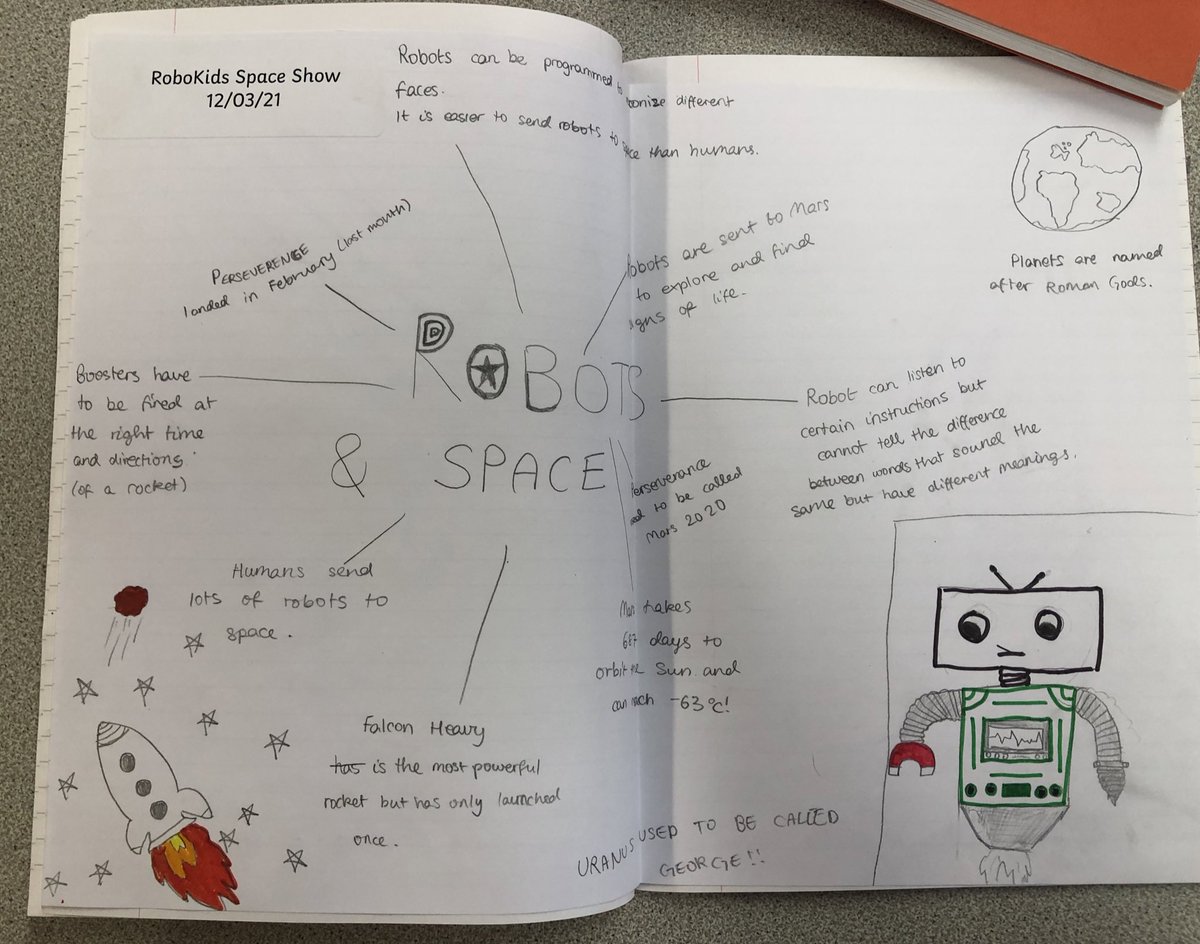 RoboKids Space Show
12/03/21
Robots can be programmed to
onise different
faces.
It is easier to send robots to space than humans.
PERSEVERENCE
landed in February (last month)
Robots are sent to Mars
to explore and find
igns of life.
Planets are named
after Roman Gods.
Boosters have
to be fired at
the right time
and directions
(of a rocket)
ROBOTS
& SPACE
Robot can listen to
certain instructions but
cannot tell the difference
between words that sound the
same but have different meanings.
Perseverance
ed to be called
Mars 2020
Humans send
lots of robots to
space.
Mars takes
687 days to
orbit the Sun and
can reach -63°C!
Falcon Heavy
has is the most powerful
rocket but has only launched
once.
URANUS USED TO BE CALLED
GEORGE!!